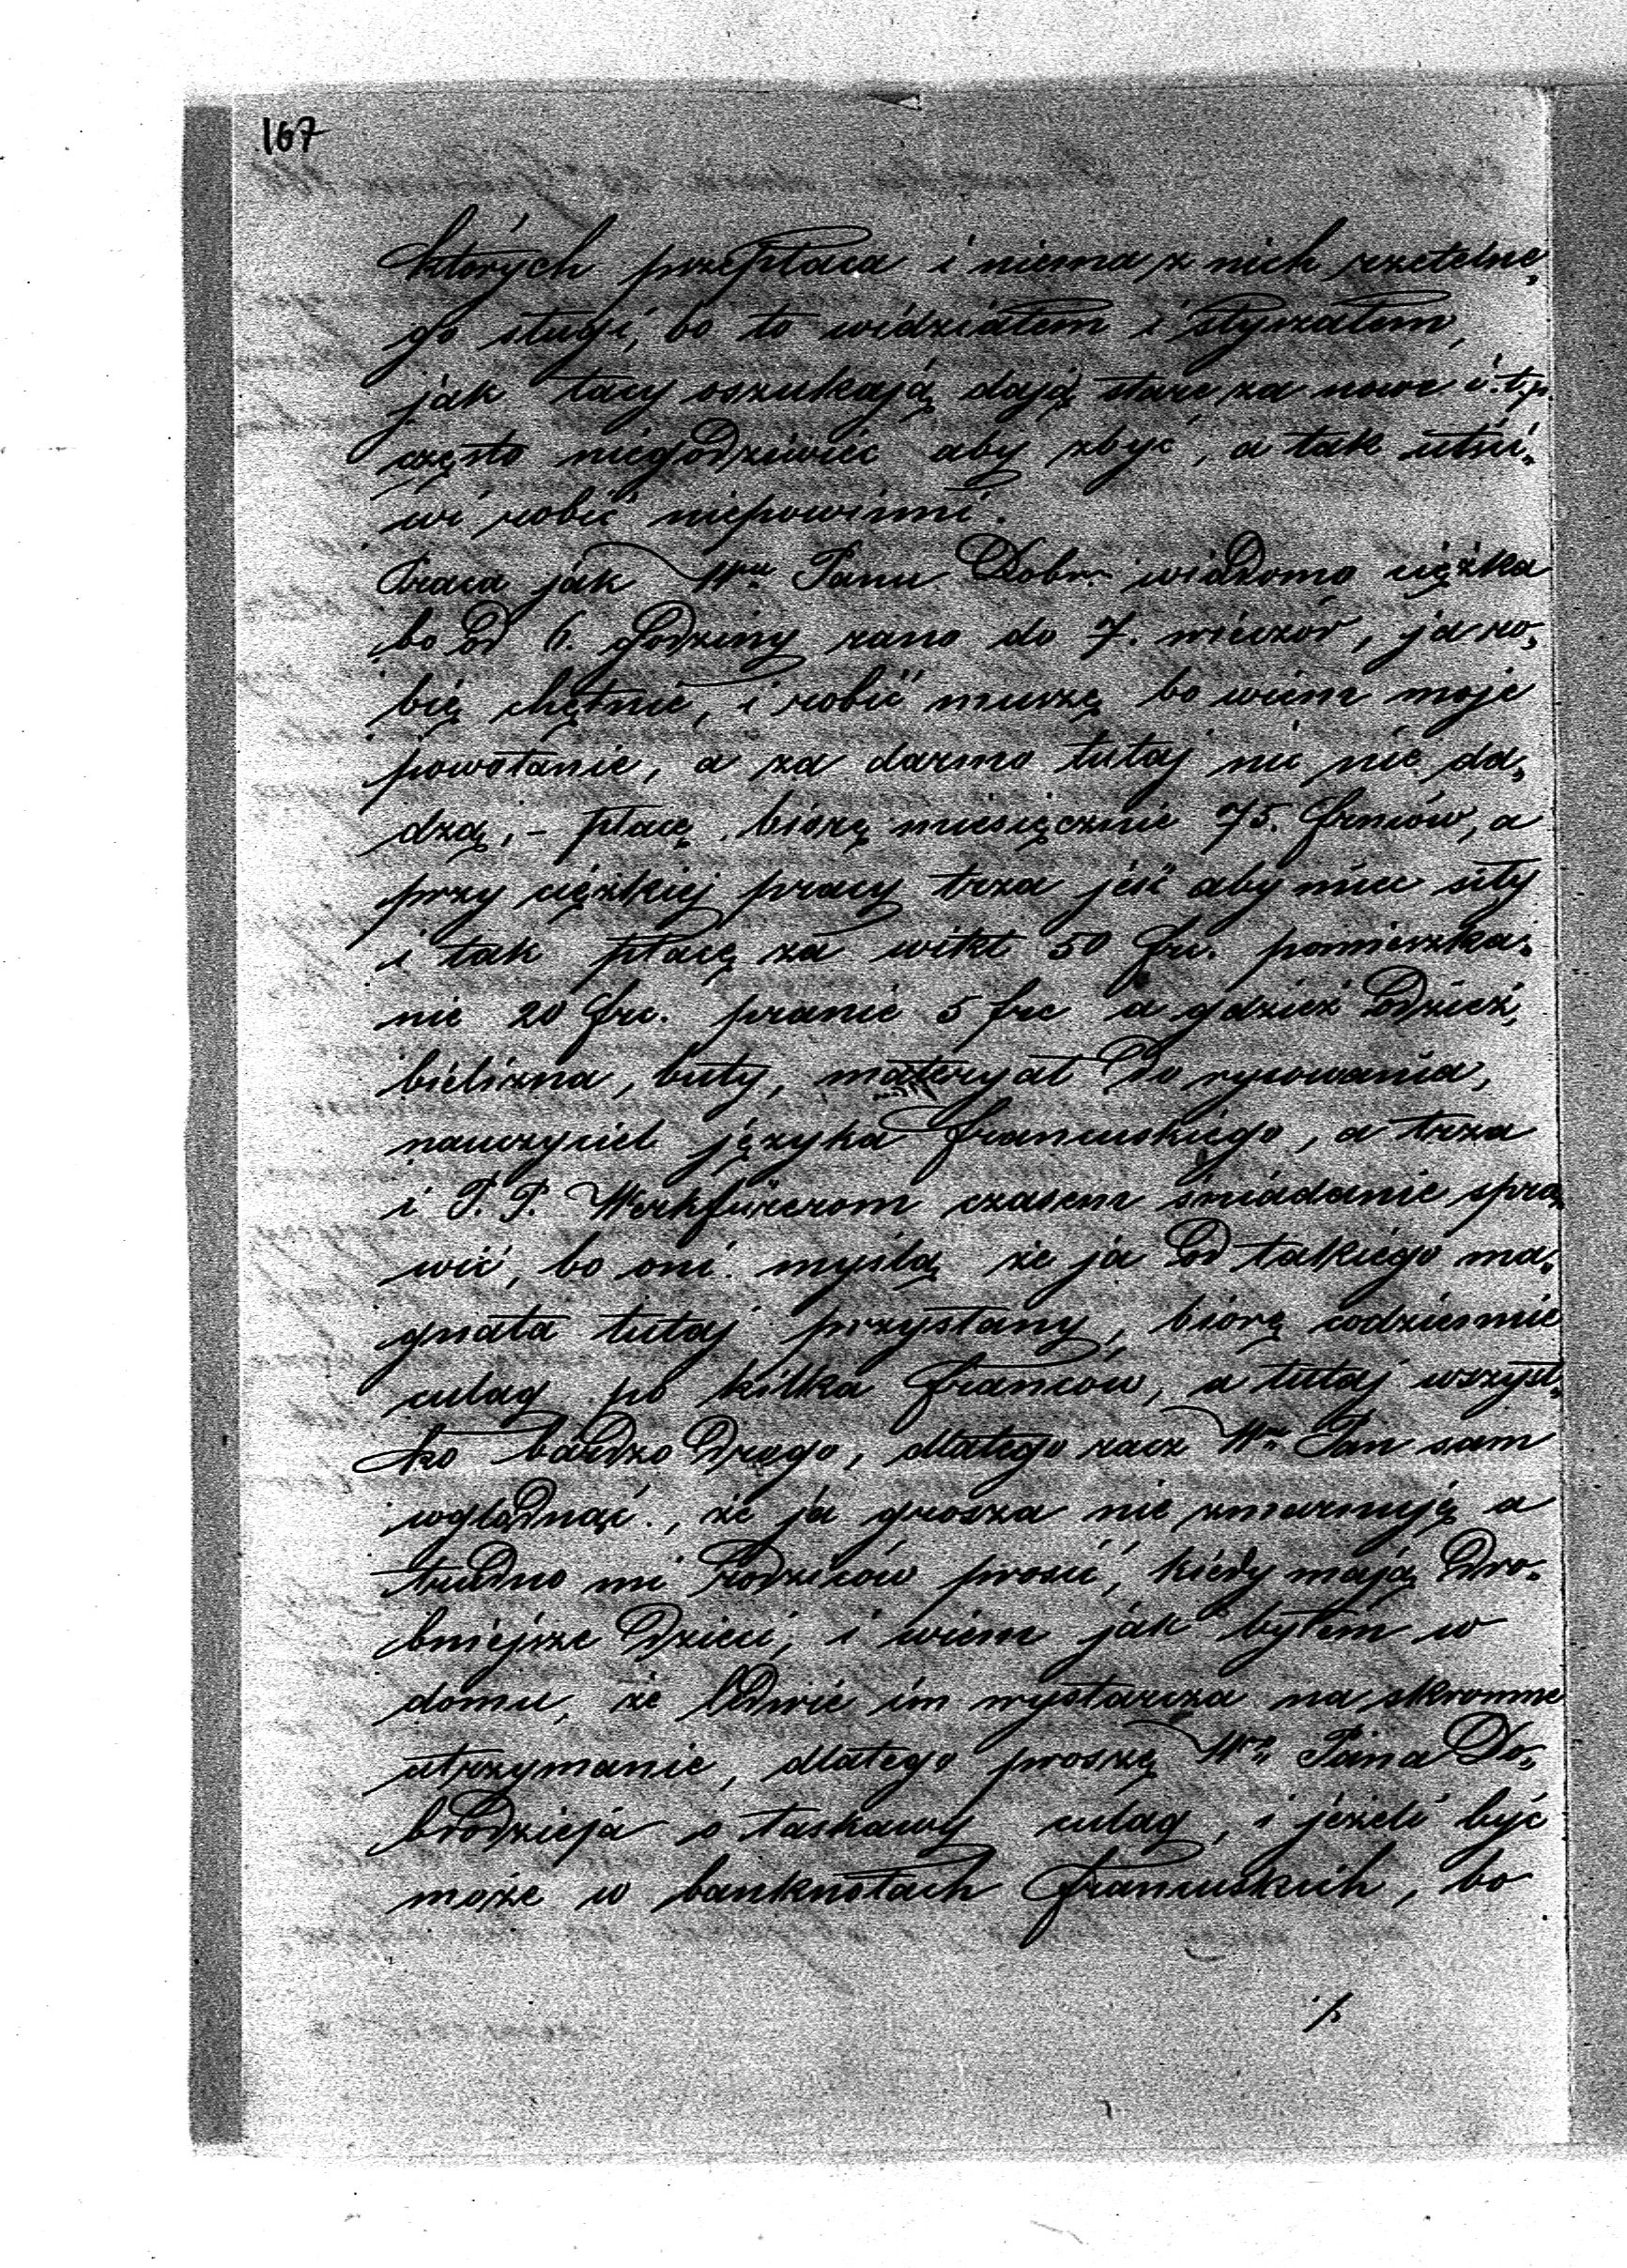 167
których przepłaca i niema z nich rzetelne„
go sługi, bo to widziałem i słyszałem,
jak tacy oszukają dają stare za nowe i.t.p.
często niegodziwie aby zbyć, a tak utści„
wi robić niepowinni.
Praca jak Wnu Panu Dobr. wiadomo ciężka
bo od 6. godziny rano do 7. wieczór, ja ro„
bię chętnie, i robić muszę bo wiem moje
powołanie, a za darmo tutaj nic nie da„
dzą, – płacę biorę miesięcznie 75. frnców, a
przy ciężkiej pracy trza jeść aby mieć siły
i tak płacę za wikt 50 frc. pomieszka„
nie 20 frc. pranie 5 frc a gdzież odzież,
bielizna, buty, materyał do rysowania,
nauczyciel języka francuskiego, a trza
i P. P. Werkfürerom czasem śniadanie spra„
wić, bo oni myślą że ja od takiego ma„
gnata tutaj przysłany, biorę codziennie
culag po kilka franców, a tutaj wszyst„
ko bardzo drogo, dlatego racz Wny Pan sam
wglądnąć, że ja grosza nie zmarnuję a
trudno mi Rodziców prosić, kiedy mają dro„
bniejsze dzieci, i wiem jak byłem w
domu, że ledwie im wystarcza na skromne
utrzymanie, dlatego proszę Wgo Pana Do„
brodzieja o łaskawy culag, i jeżeli być
może w banknotach francuskich, bo
./.